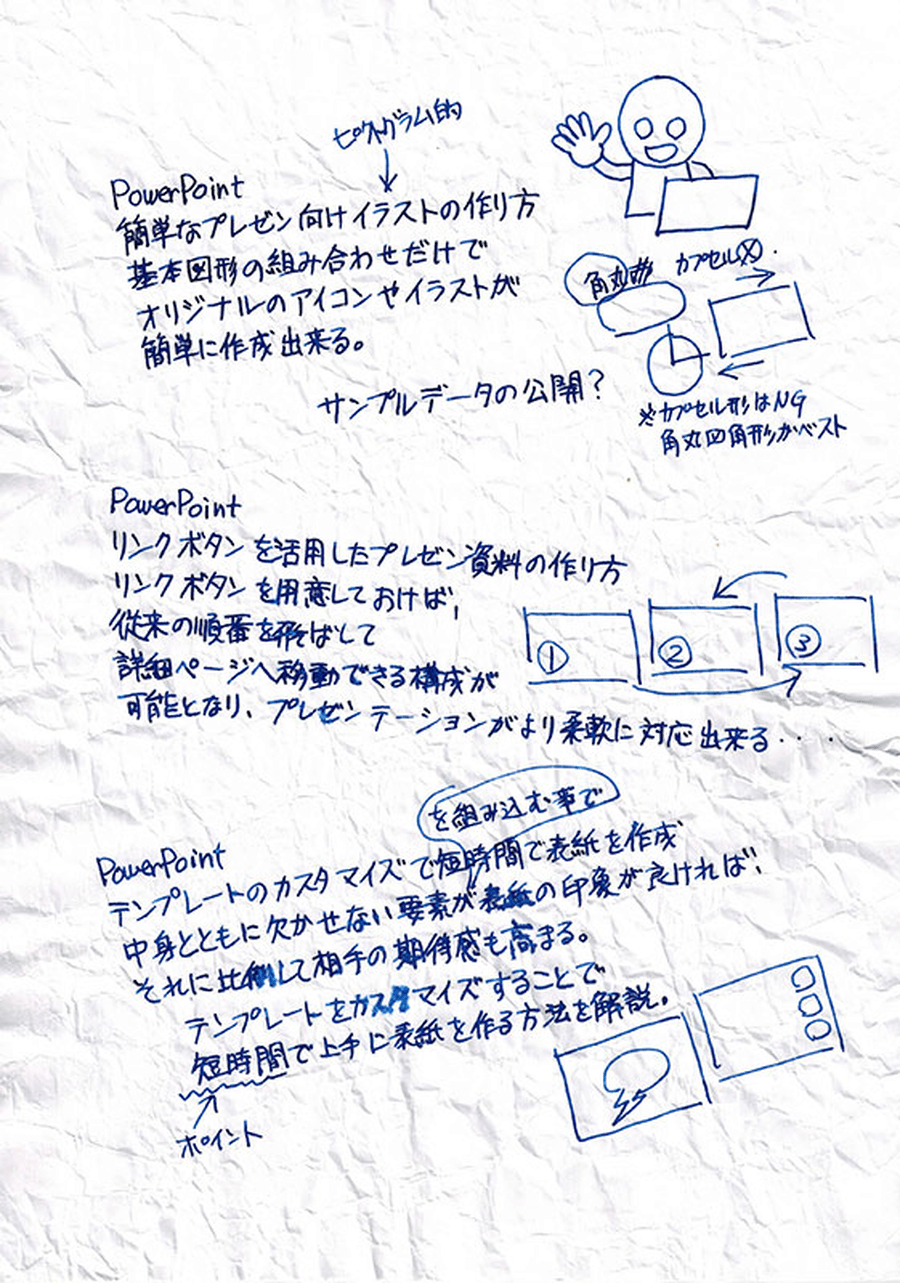 ピクトグラム的
PowerPoint
簡単なプレゼン向けイラストの作り方
基本図形の組み合わせだけで
オリジナルのアイコンやイラストが
簡単に作成出来る。
サンプルデータの公開?
角丸形 カプセル×.
※カプセル形はNG
角丸四角形がベスト
PowerPoint
リンクボタンを活用したプレゼン資料の作り方
リンクボタンを用意しておけば、
従来の順番を飛ばして
詳細ページへ移動できる構成が
可能となり、プレゼンテーションがより柔軟に対応出来る・・・
① ② ③
を組み込む事で
PowerPoint
テンプレートのカスタマイズで短時間で表紙を作成
中身とともに欠かせない要素が表紙の印象が良ければ、
それに比例して相手の期待感も高まる。
テンプレートをカスタマイズすることで
短時間で上手に表紙を作る方法を解説。
ポイント